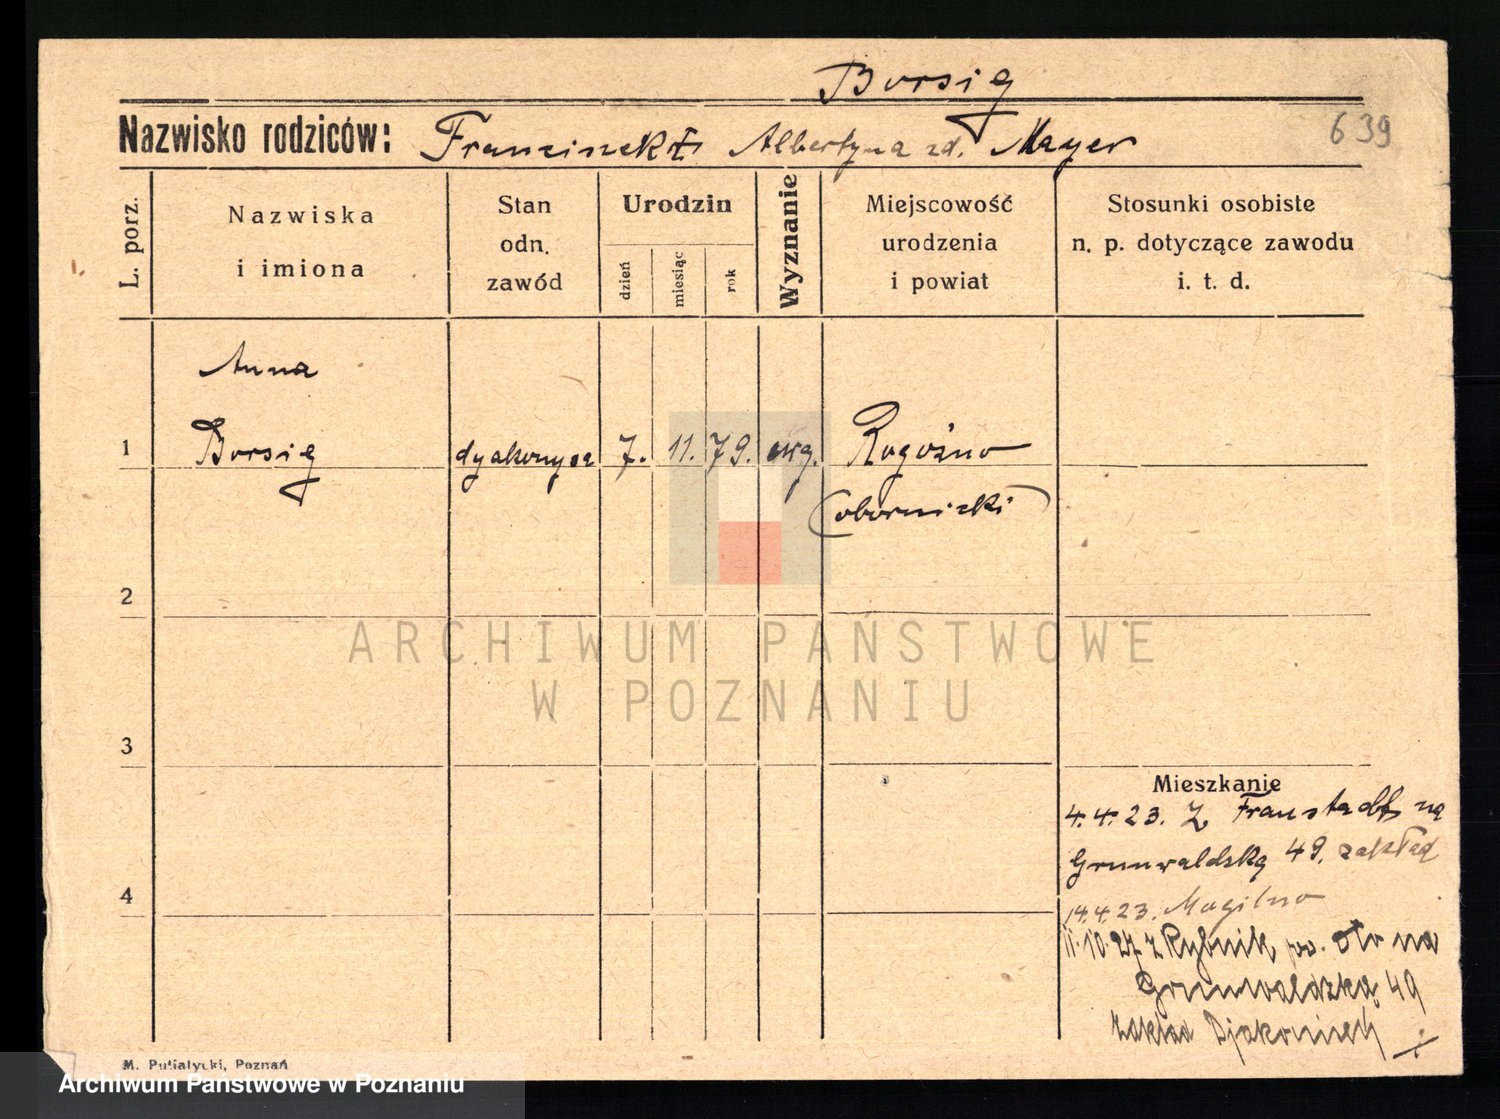 Borsig
Nazwisko rodziców: Franciszek Albertyna zd. Mayer
639
L. porz.
Nazwiska
i imiona
Stan
odn.
zawód
Urodzin
dzień
miesiąc
rok
Wyznanie
Miejscowość
urodzenia
i powiat
Stosunki osobiste
n. p. dotyczące zawodu
i. t. d.
Anna
1 Borsig dyakonysa 7. 11. 79. ewg. Rogoźno
(obornicki)
2
ARCHIWUM PAŃSTWOWE
W POZNANIU
3
Mieszkanie
4.4.23. Z Fraustadt na
Grunwaldską 49. zakład
4
14.4.23. Mogilno
11.10.27 z Rybnik na
Grunwaldzką 49
Zakład Djakonieś
M. Putiatycki, Poznań
Archiwum Państwowe w Poznaniu